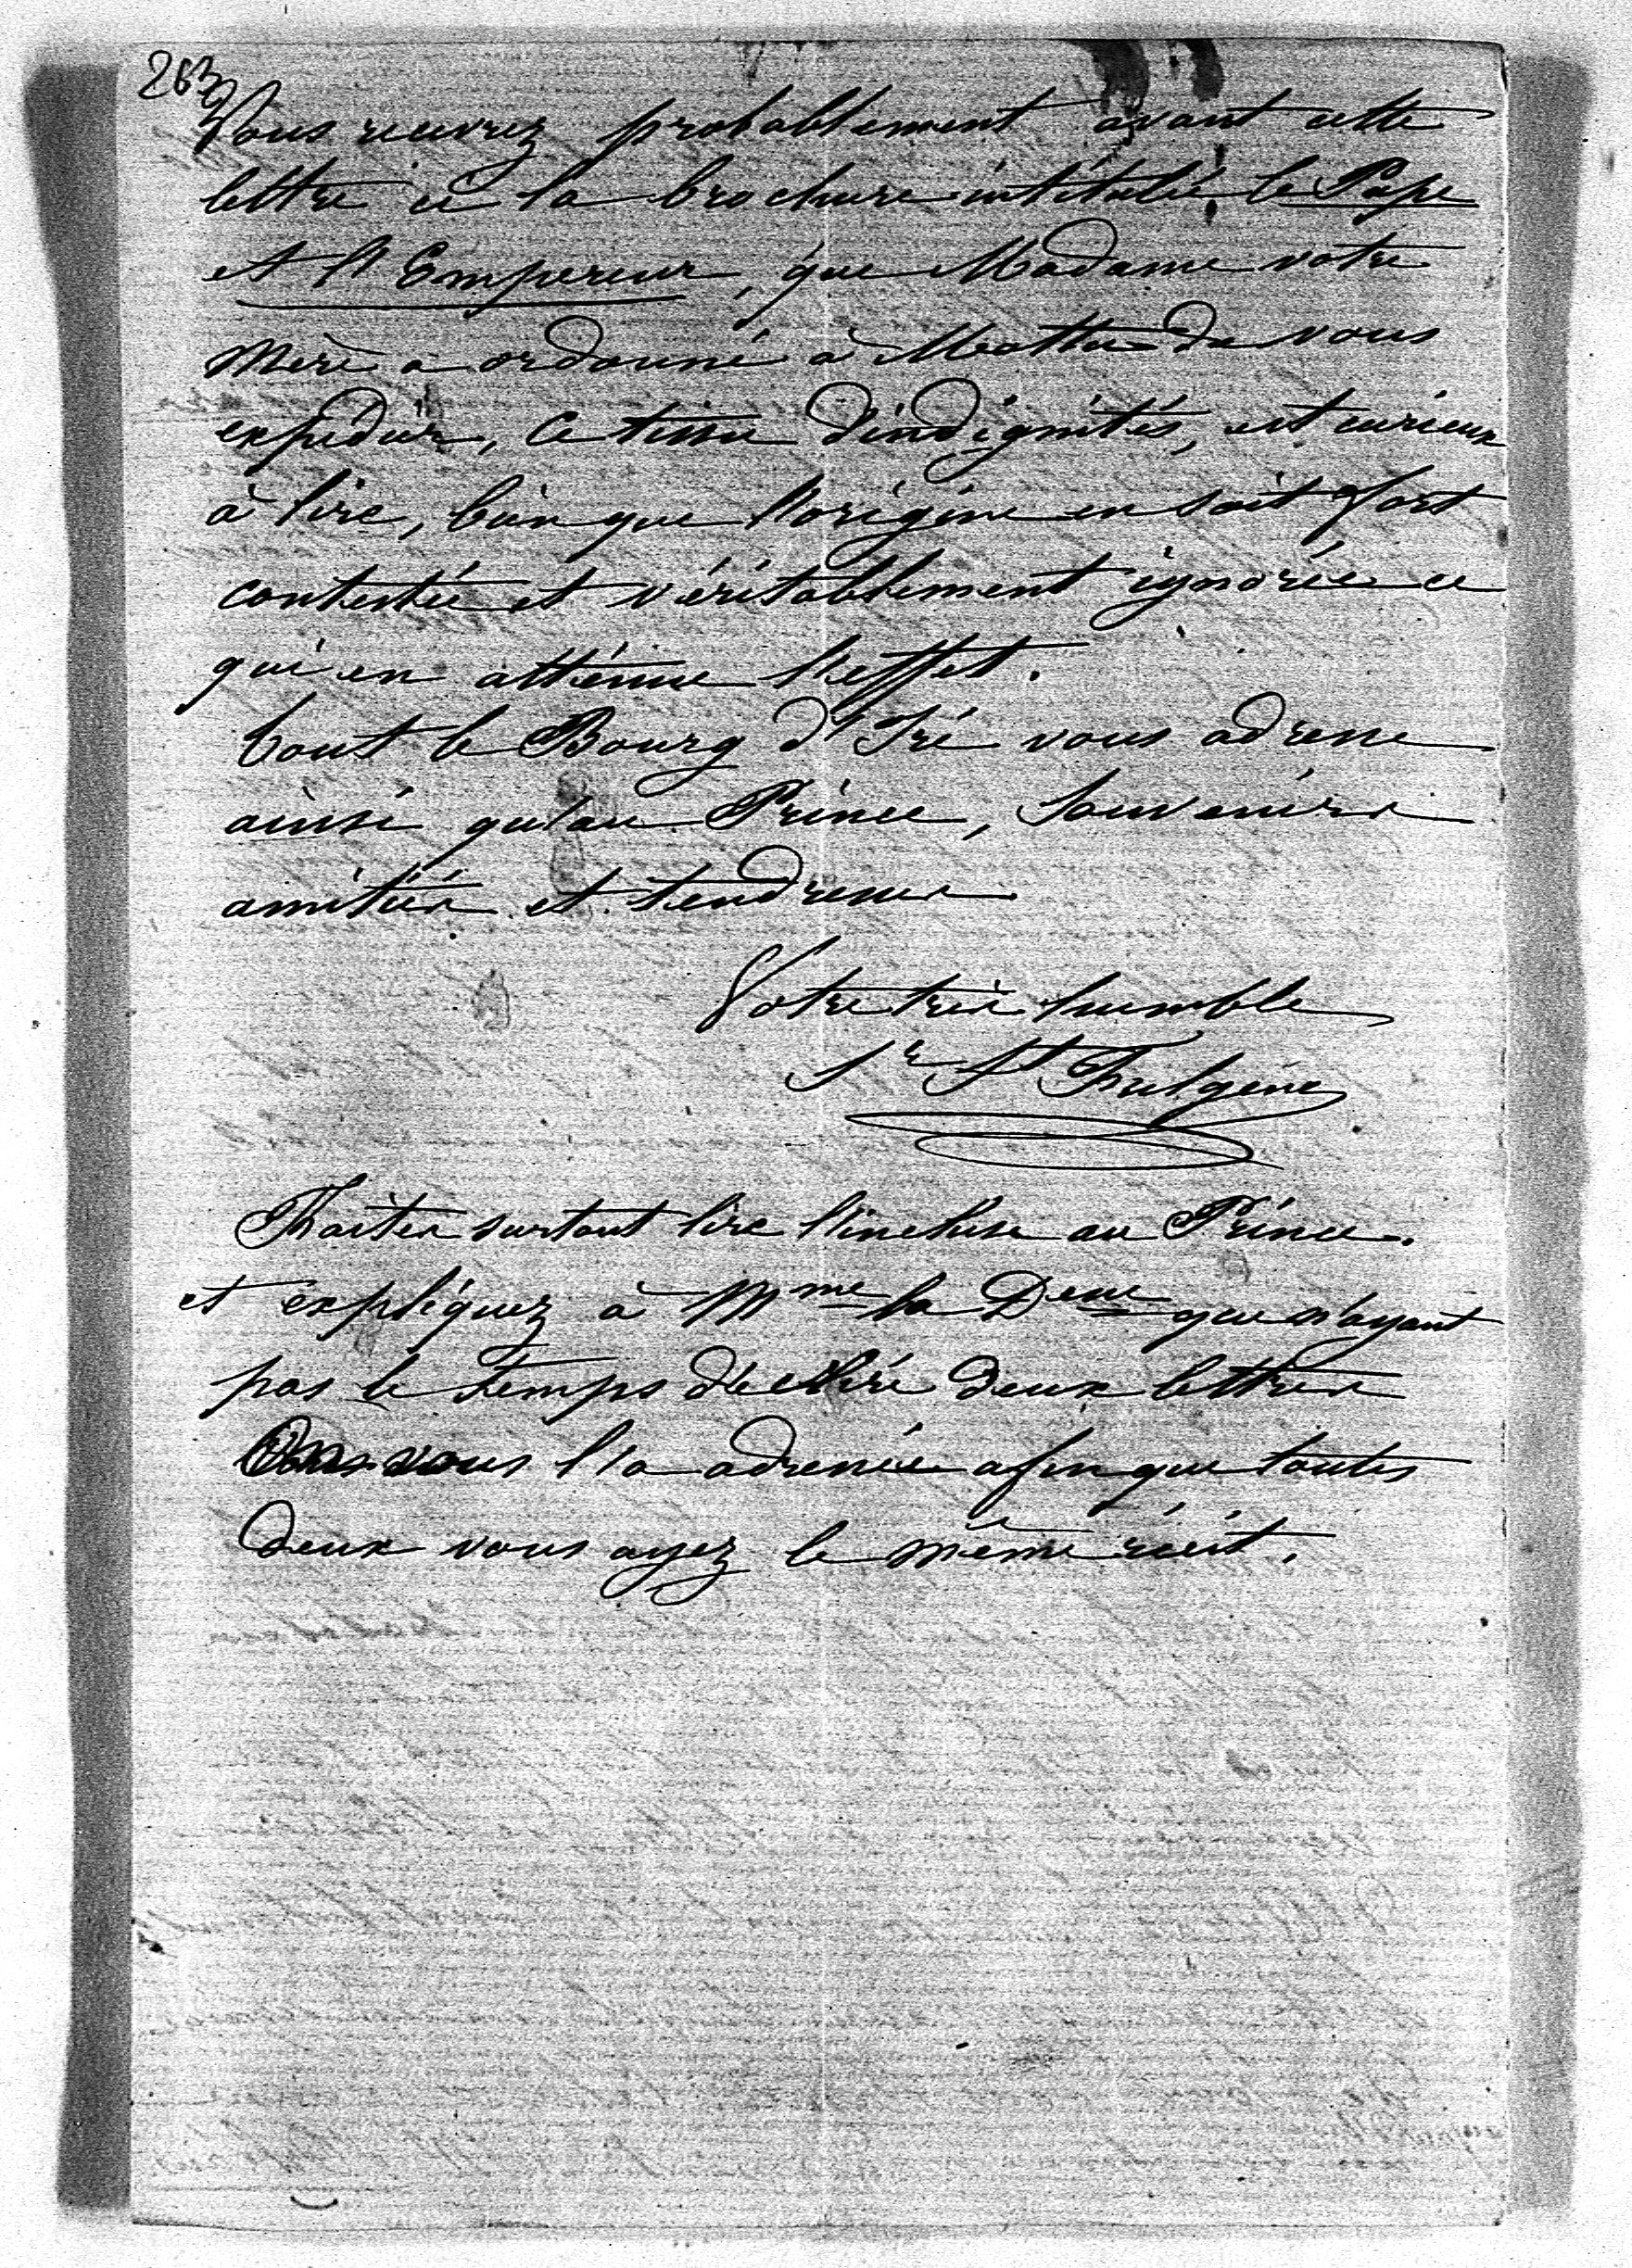 263
Vous recevrez probablement avant cette
lettre ci la brochure intitulée, le Pape
et l'Empereur, que Madame votre
mère a ordonné à Motta de vous
expédier, ce tissu d'indignités, est curieux
à lire, bien que l'origine en soit fort
contestée et véritablement ignorée ce
qui en atténue l'effet.
tout le Bourg d'Iré vous adresse
ainsi qu'au Prince, souvenirs
amitiés et tendresses
Votre très humble
Sr St Fulgence
Faites surtout lire l'incluse au Prince.
et expliquez à Mme la Desse que n'ayant
pas le temps d'écrire deux lettres
On vous l'a adressée afin que toutes
deux vous ayez le même récit.